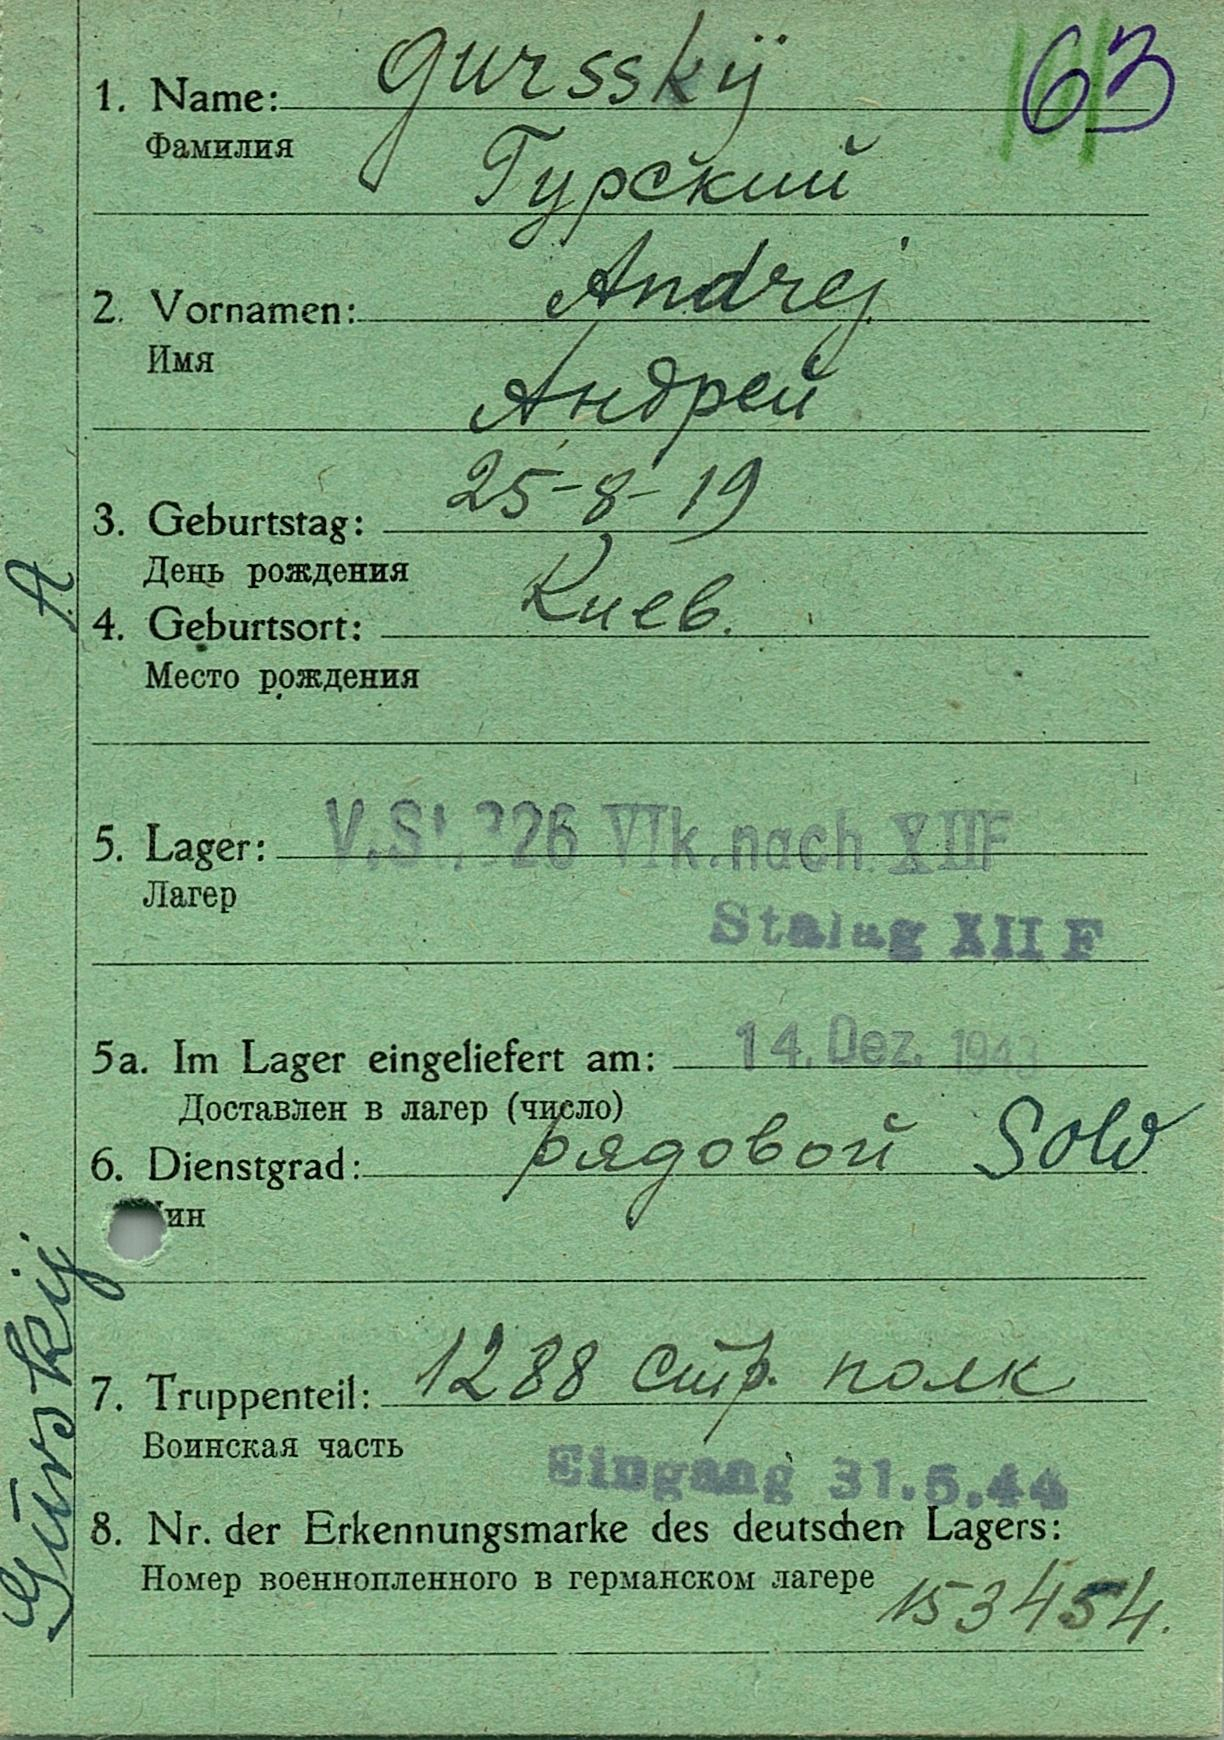 63
1. Name: Gursskij
Фамилия
Гурский
2. Vornamen: Andrej
Имя
Андрей
3. Geburtstag: 25-8-19
День рождения
4. Geburtsort: Киев.
Место рождения
5. Lager: V.St. 326 VIk. nach XIIF
Лагер
Stalag XII F
5a. Im Lager eingeliefert am: 14. Dez. 1943
Доставлен в лагер (число)
6. Dienstgrad: рядовой Sold
ин
7. Truppenteil: 1288 стр. полк
Воинская часть
Eingang 31.5.44
8. Nr. der Erkennungsmarke des deutschen Lagers:
Номер военнопленного в германском лагере
153454.
Gūrskij A